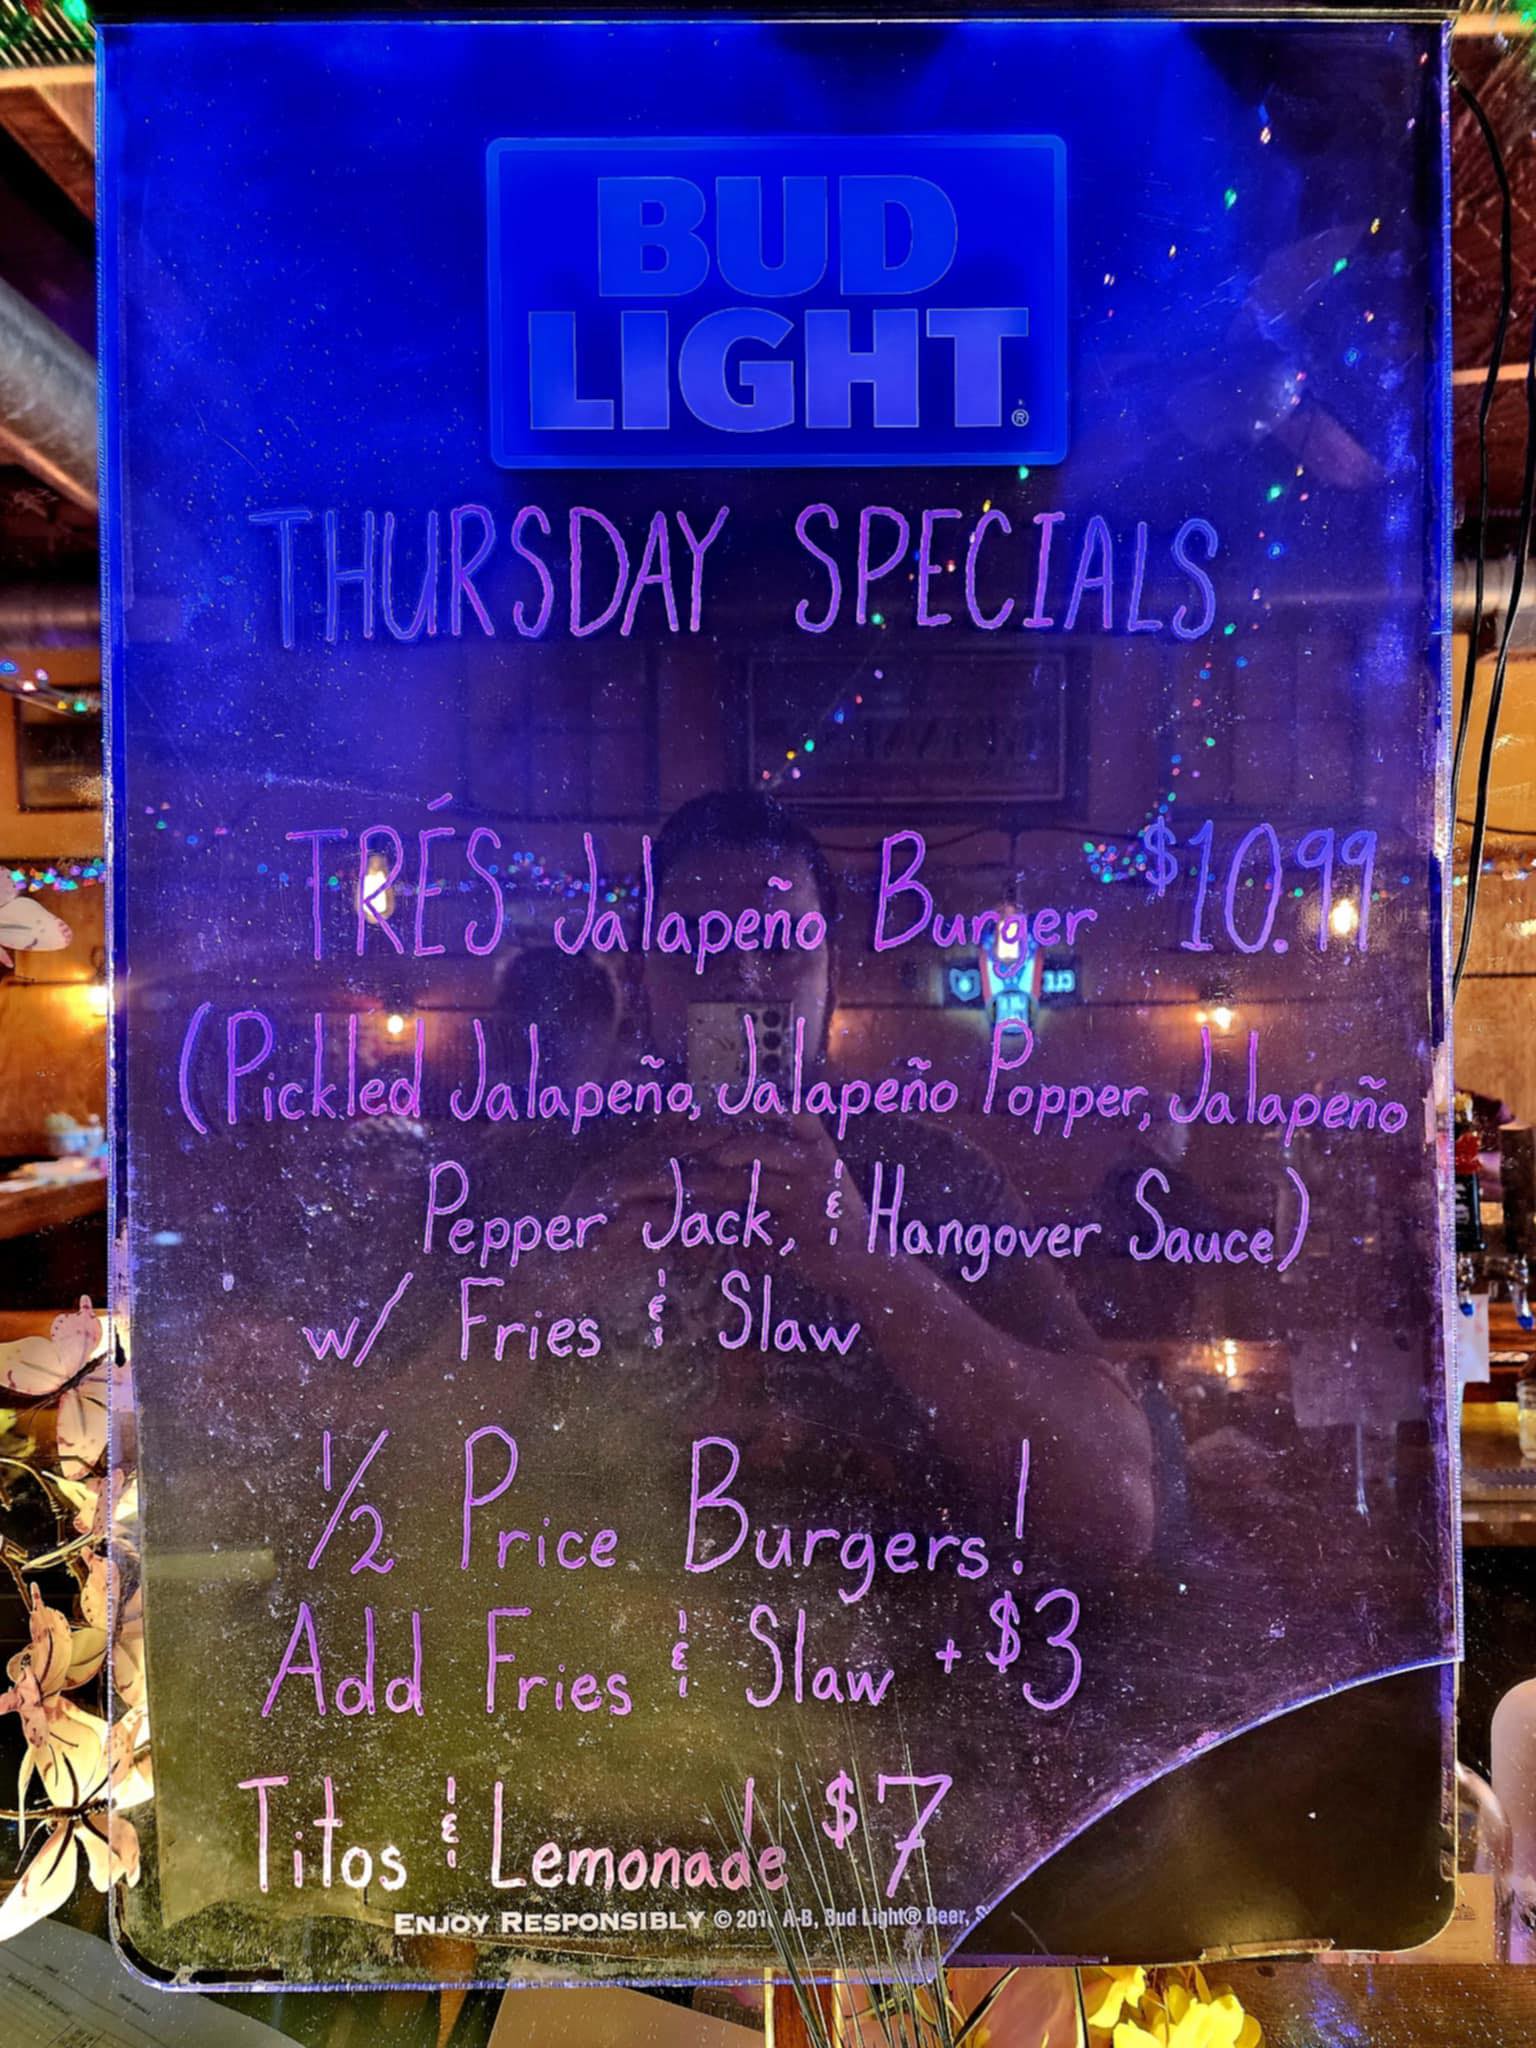 BUD
LIGHT®
THURSDAY SPECIALS
TRÉS Jalapeño Burger $10.99
(Pickled Jalapeño, Jalapeño Popper, Jalapeño
Pepper Jack, & Hangover Sauce)
w/ Fries & Slaw
1/2 Price Burgers!
Add Fries & Slaw + $3
Titos & Lemonade $7
ENJOY RESPONSIBLY © A-B, Bud Light® Beer,